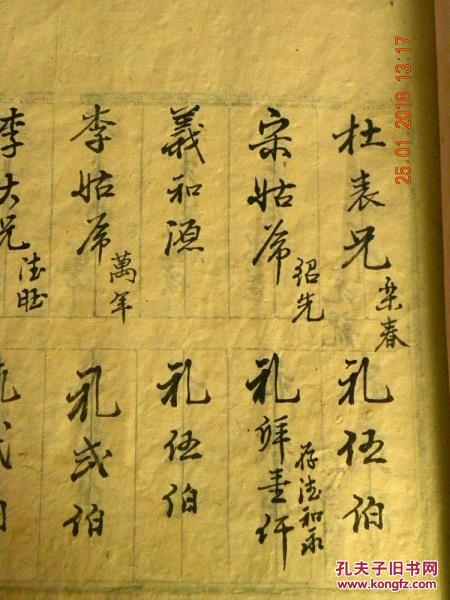 杜表兄 栾春
礼伍佰
宋姑爷 绍先
礼 壹仟 存德和永
義和源
礼伍佰
李姑爷 萬年
礼弍佰
李大兄 德旺
25.01.2018 13:17
孔夫子旧书网
www.kongfz.com